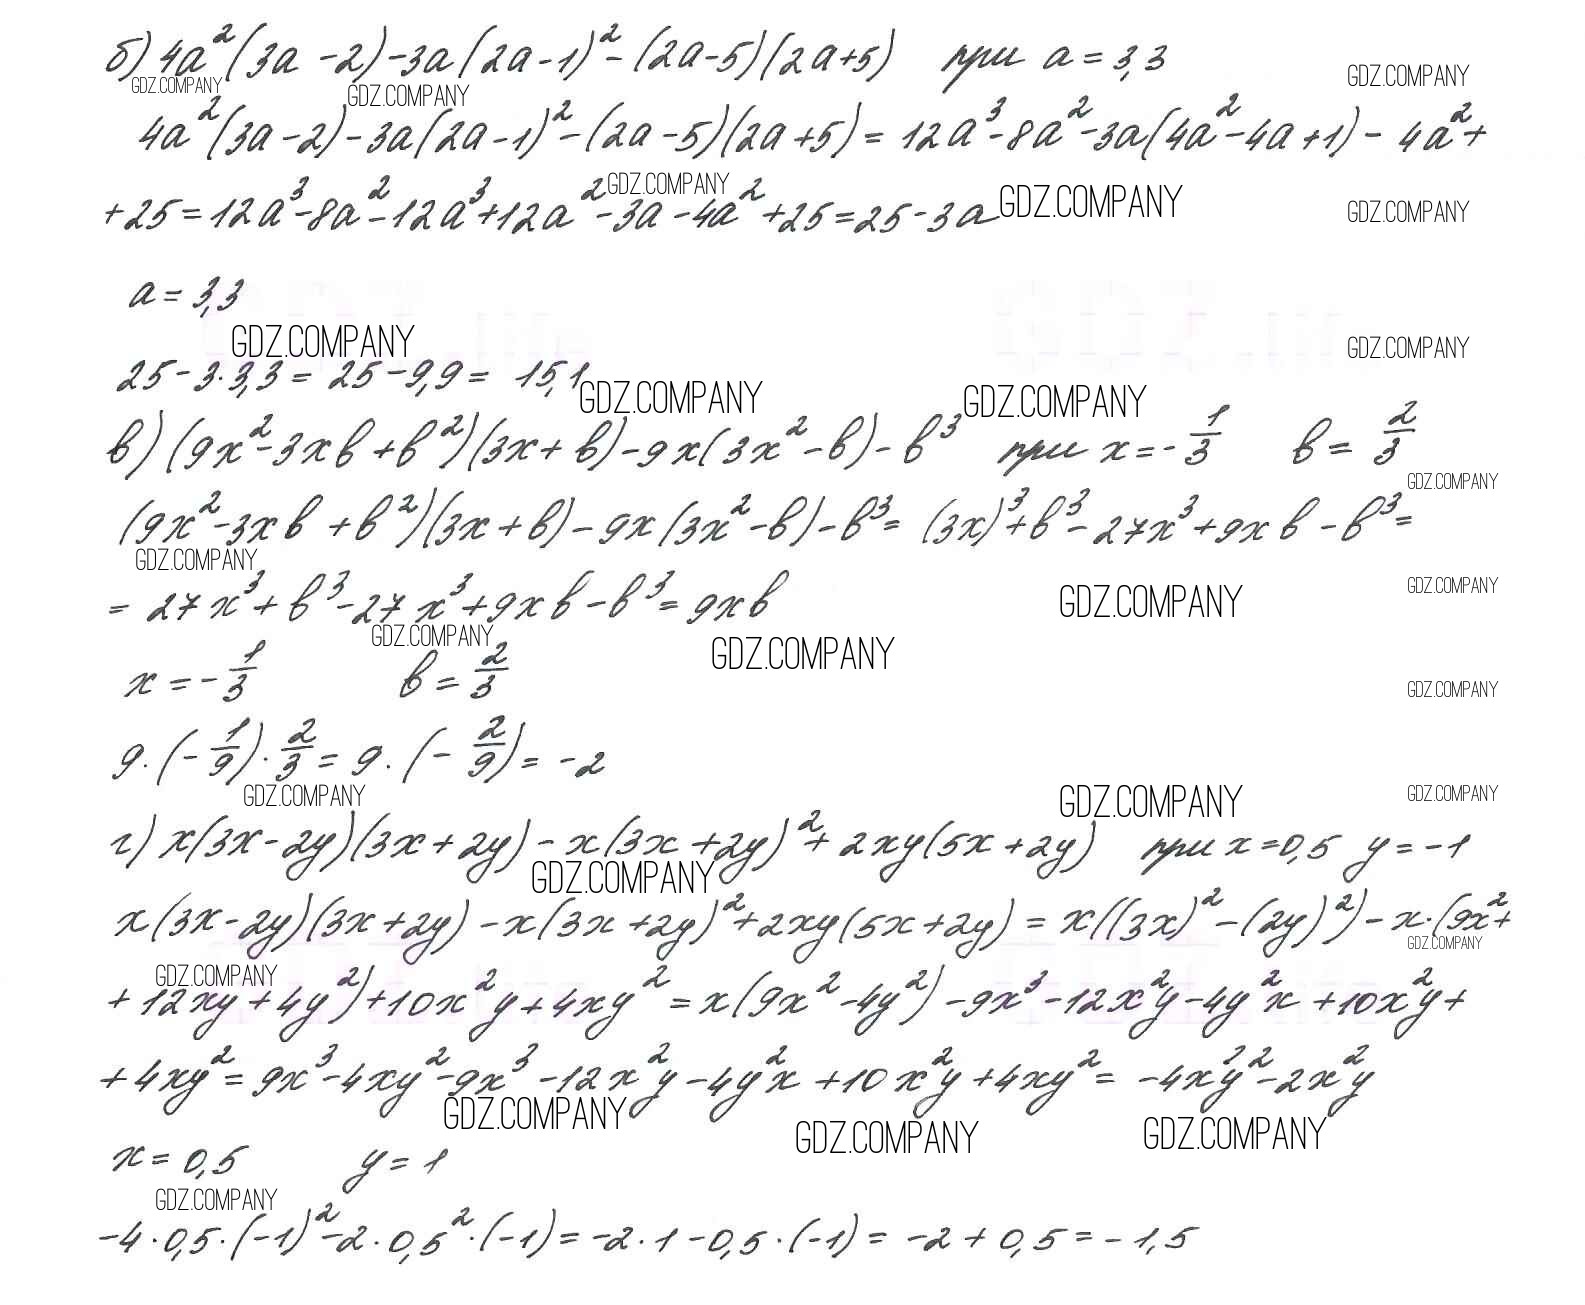 б) 4a²(3a-2)-3a(2a-1)²-(2a-5)(2a+5) при a=3,3
GDZ.COMPANY GDZ.COMPANY GDZ.COMPANY
4a²(3a-2)-3a(2a-1)²-(2a-5)(2a+5)=12a³-8a²-3a(4a²-4a+1)-4a²+
GDZ.COMPANY
+25=12a³-8a²-12a³+12a²-3a-4a²+25=25-3a GDZ.COMPANY GDZ.COMPANY
a=3,3
GDZ.COMPANY GDZ.COMPANY
25-3·3,3=25-9,9=15,1
GDZ.COMPANY GDZ.COMPANY
в) (9x²-3xв+в²)(3x+в)-9x(3x²-в)-в³ при x=-1/3 в=2/3
GDZ.COMPANY
(9x²-3xв+в²)(3x+в)-9x(3x²-в)-в³=(3x)³+в³-27x³+9xв-в³=
GDZ.COMPANY
=27x³+в³-27x³+9xв-в³=9xв GDZ.COMPANY GDZ.COMPANY
GDZ.COMPANY GDZ.COMPANY
x=-1/3 в=2/3 GDZ.COMPANY
9·(-1/9)·2/3=9·(-2/9)=-2
GDZ.COMPANY GDZ.COMPANY GDZ.COMPANY
г) x(3x-2y)(3x+2y)-x(3x+2y)²+2xy(5x+2y) при x=0,5 y=-1
GDZ.COMPANY
x(3x-2y)(3x+2y)-x(3x+2y)²+2xy(5x+2y)=x((3x)²-(2y)²)-x·(9x²+
GDZ.COMPANY GDZ.COMPANY
+12xy+4y²)+10x²y+4xy²=x(9x²-4y²)-9x³-12x²y-4y²x+10x²y+
+4xy²=9x³-4xy²-9x³-12x²y-4y²x+10x²y+4xy²=-4xy²²-2x²y
GDZ.COMPANY GDZ.COMPANY GDZ.COMPANY
x=0,5 y=1
GDZ.COMPANY
-4·0,5·(-1)²-2·0,5²·(-1)=-2·1-0,5·(-1)=-2+0,5=-1,5